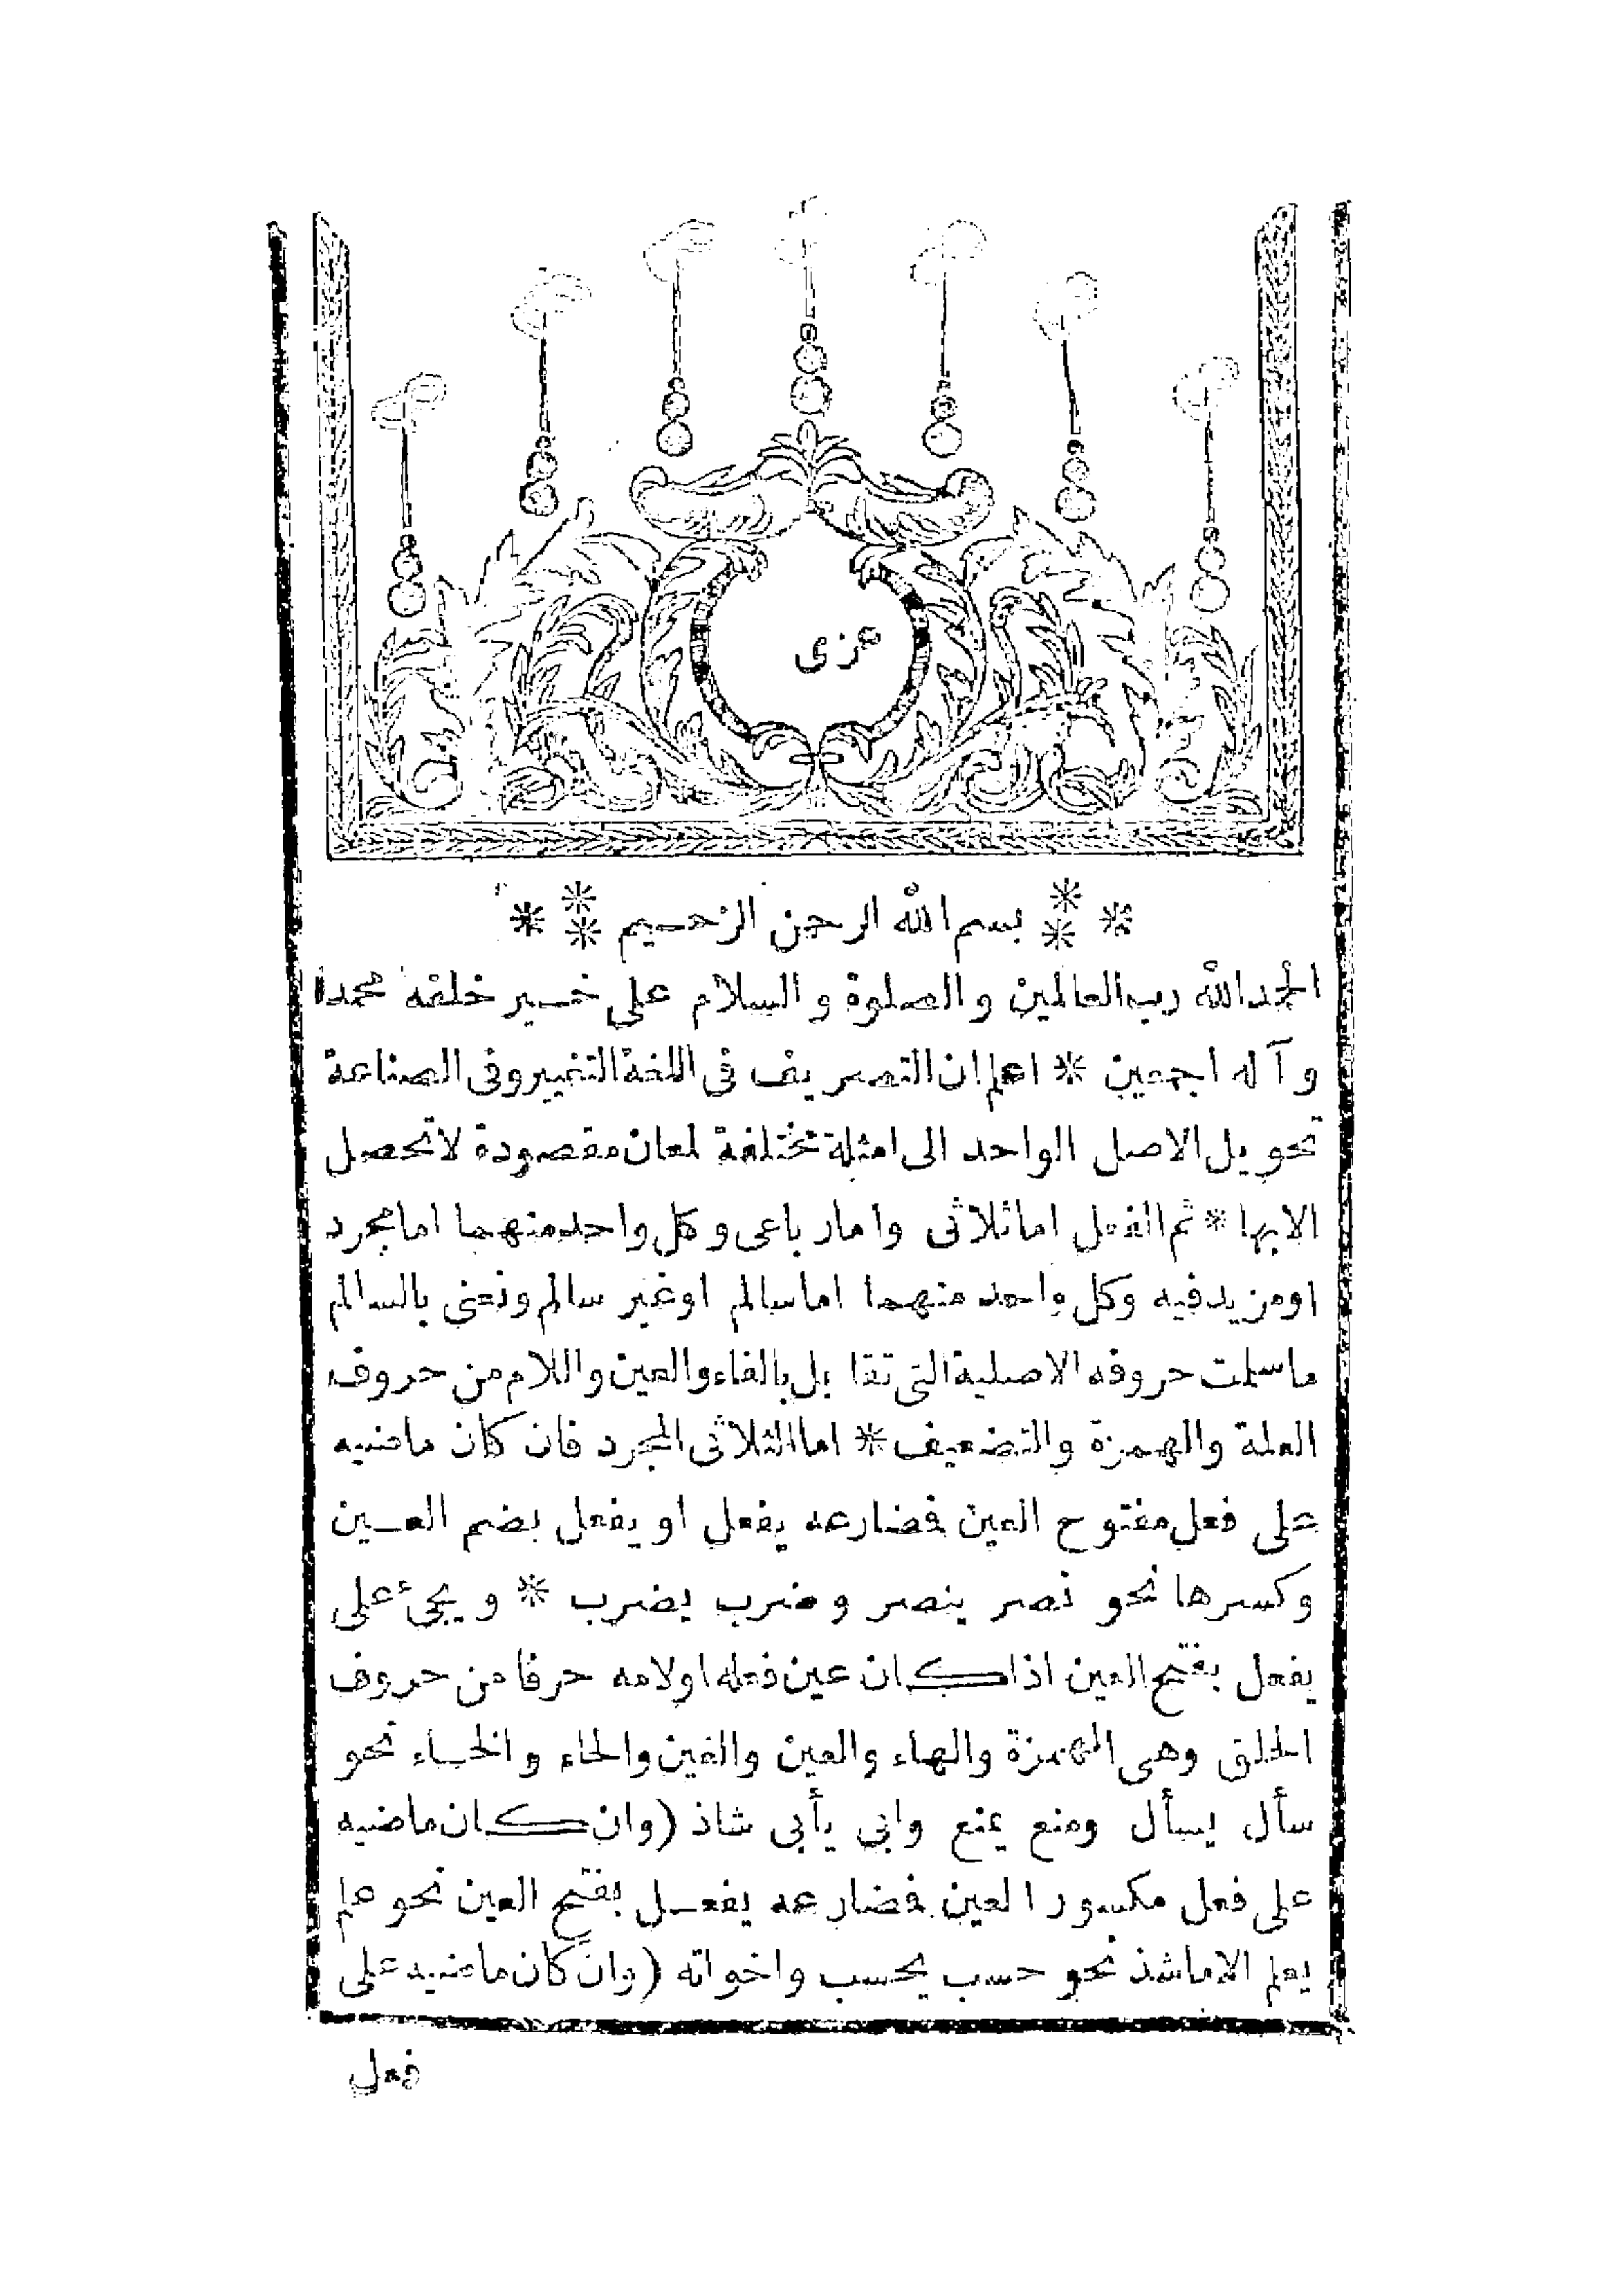 عزى
بسم الله الرحمن الرحيم
الحمد لله رب العالمين والصلوة والسلام على خير خلقه محمدا
وآله اجمعين * اعلم ان التصريف فى اللغة التغيير وفى الصناعة
تحويل الاصل الواحد الى امثلة مختلفة لمعان مقصودة لا تحصل
الا بها * ثم الفعل اما ثلاثى واما رباعى وكل واحد منهما اما مجرد
او مزيد فيه وكل واحد منهما اما سالم او غير سالم ونعنى بالسالم
ما سلمت حروفه الاصلية التى تقابل بالفاء والعين واللام من حروف
العلة والهمزة والتضعيف * اما الثلاثى المجرد فان كان ماضيه
على فعل مفتوح العين فضارعه يفعل او يفعل بضم العين
وكسرها نحو نصر ينصر وضرب يضرب * ويجئ على
يفعل بفتح العين اذا كان عين فعله او لامه حرفا من حروف
الحلق وهى الهمزة والهاء والعين والغين والحاء والخاء نحو
سأل يسأل ومنع يمنع وابى يأبى شاذ (وان كان ماضيه
على فعل مكسور العين فضارعه يفعل بفتح العين نحو علم
يعلم الا ما شذ نحو حسب يحسب واخواته (وان كان ماضيه على
فعل